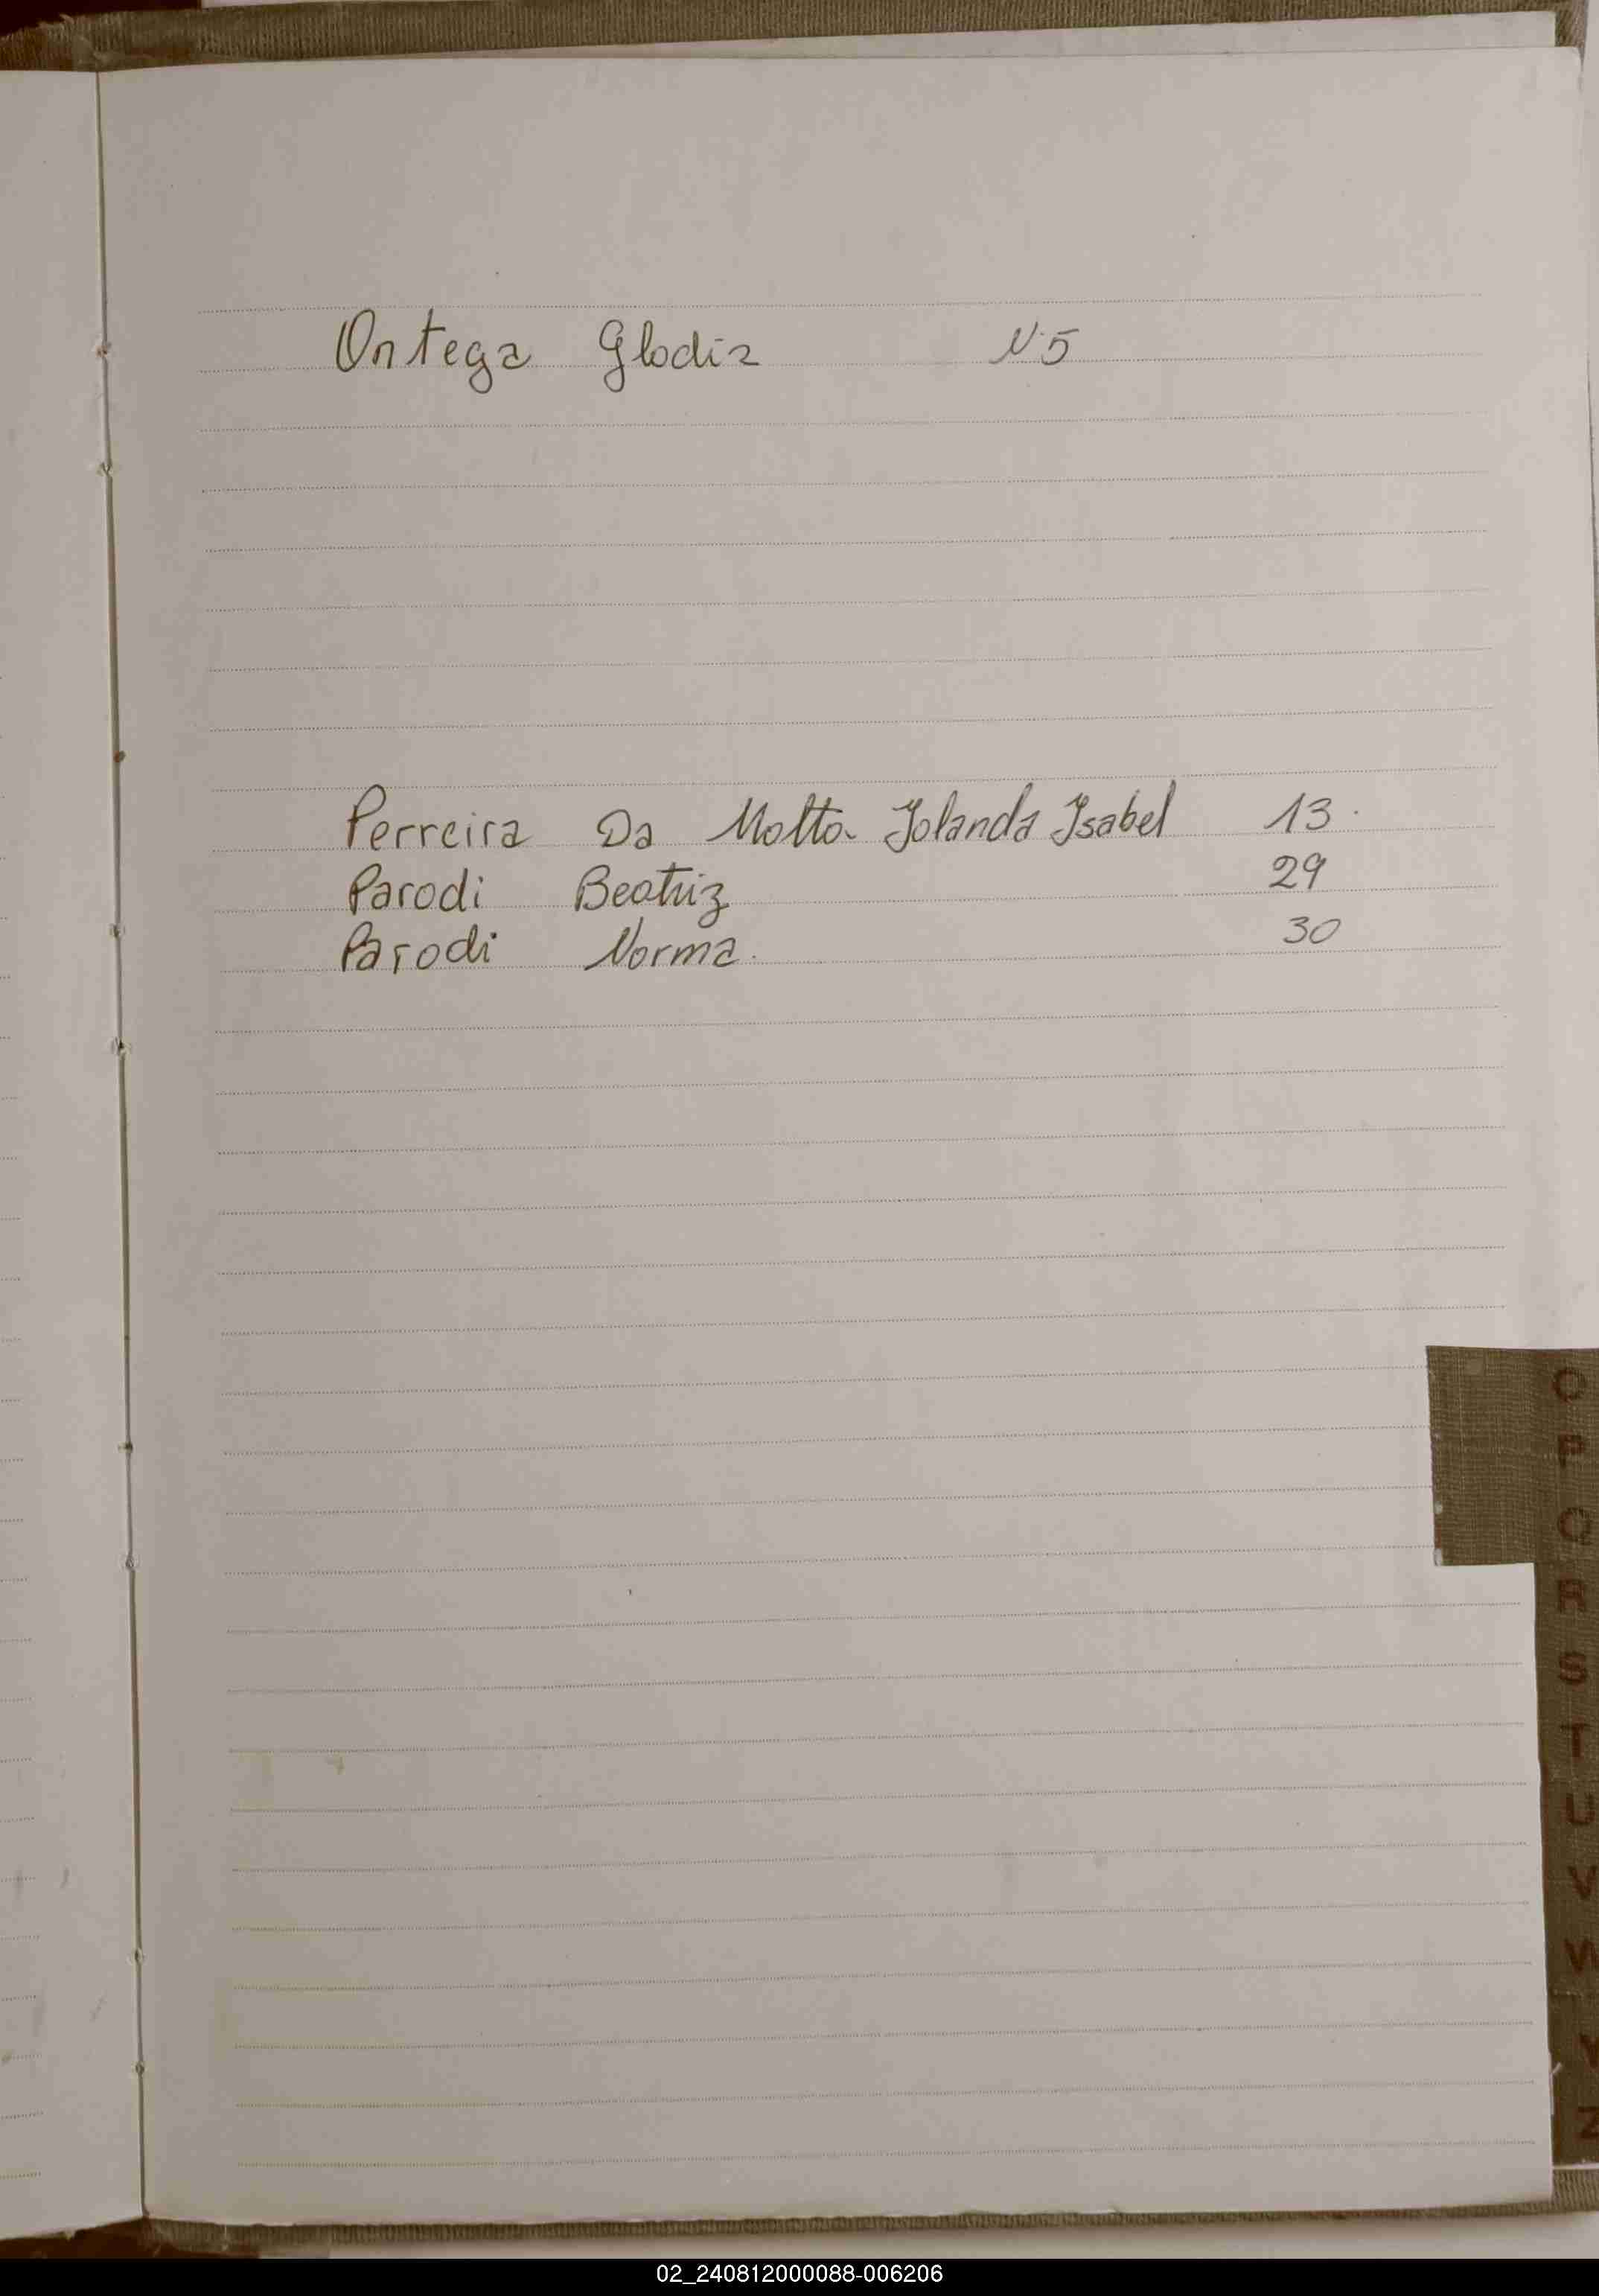 Ortega Glodia N. 5
Perreira Da Motta Jolanda Isabel 13.
Parodi Beatriz 29
Parodi Norma. 30
O
P
Q
R
S
T
U
V
W
Y
Z
02_240812000088-006206